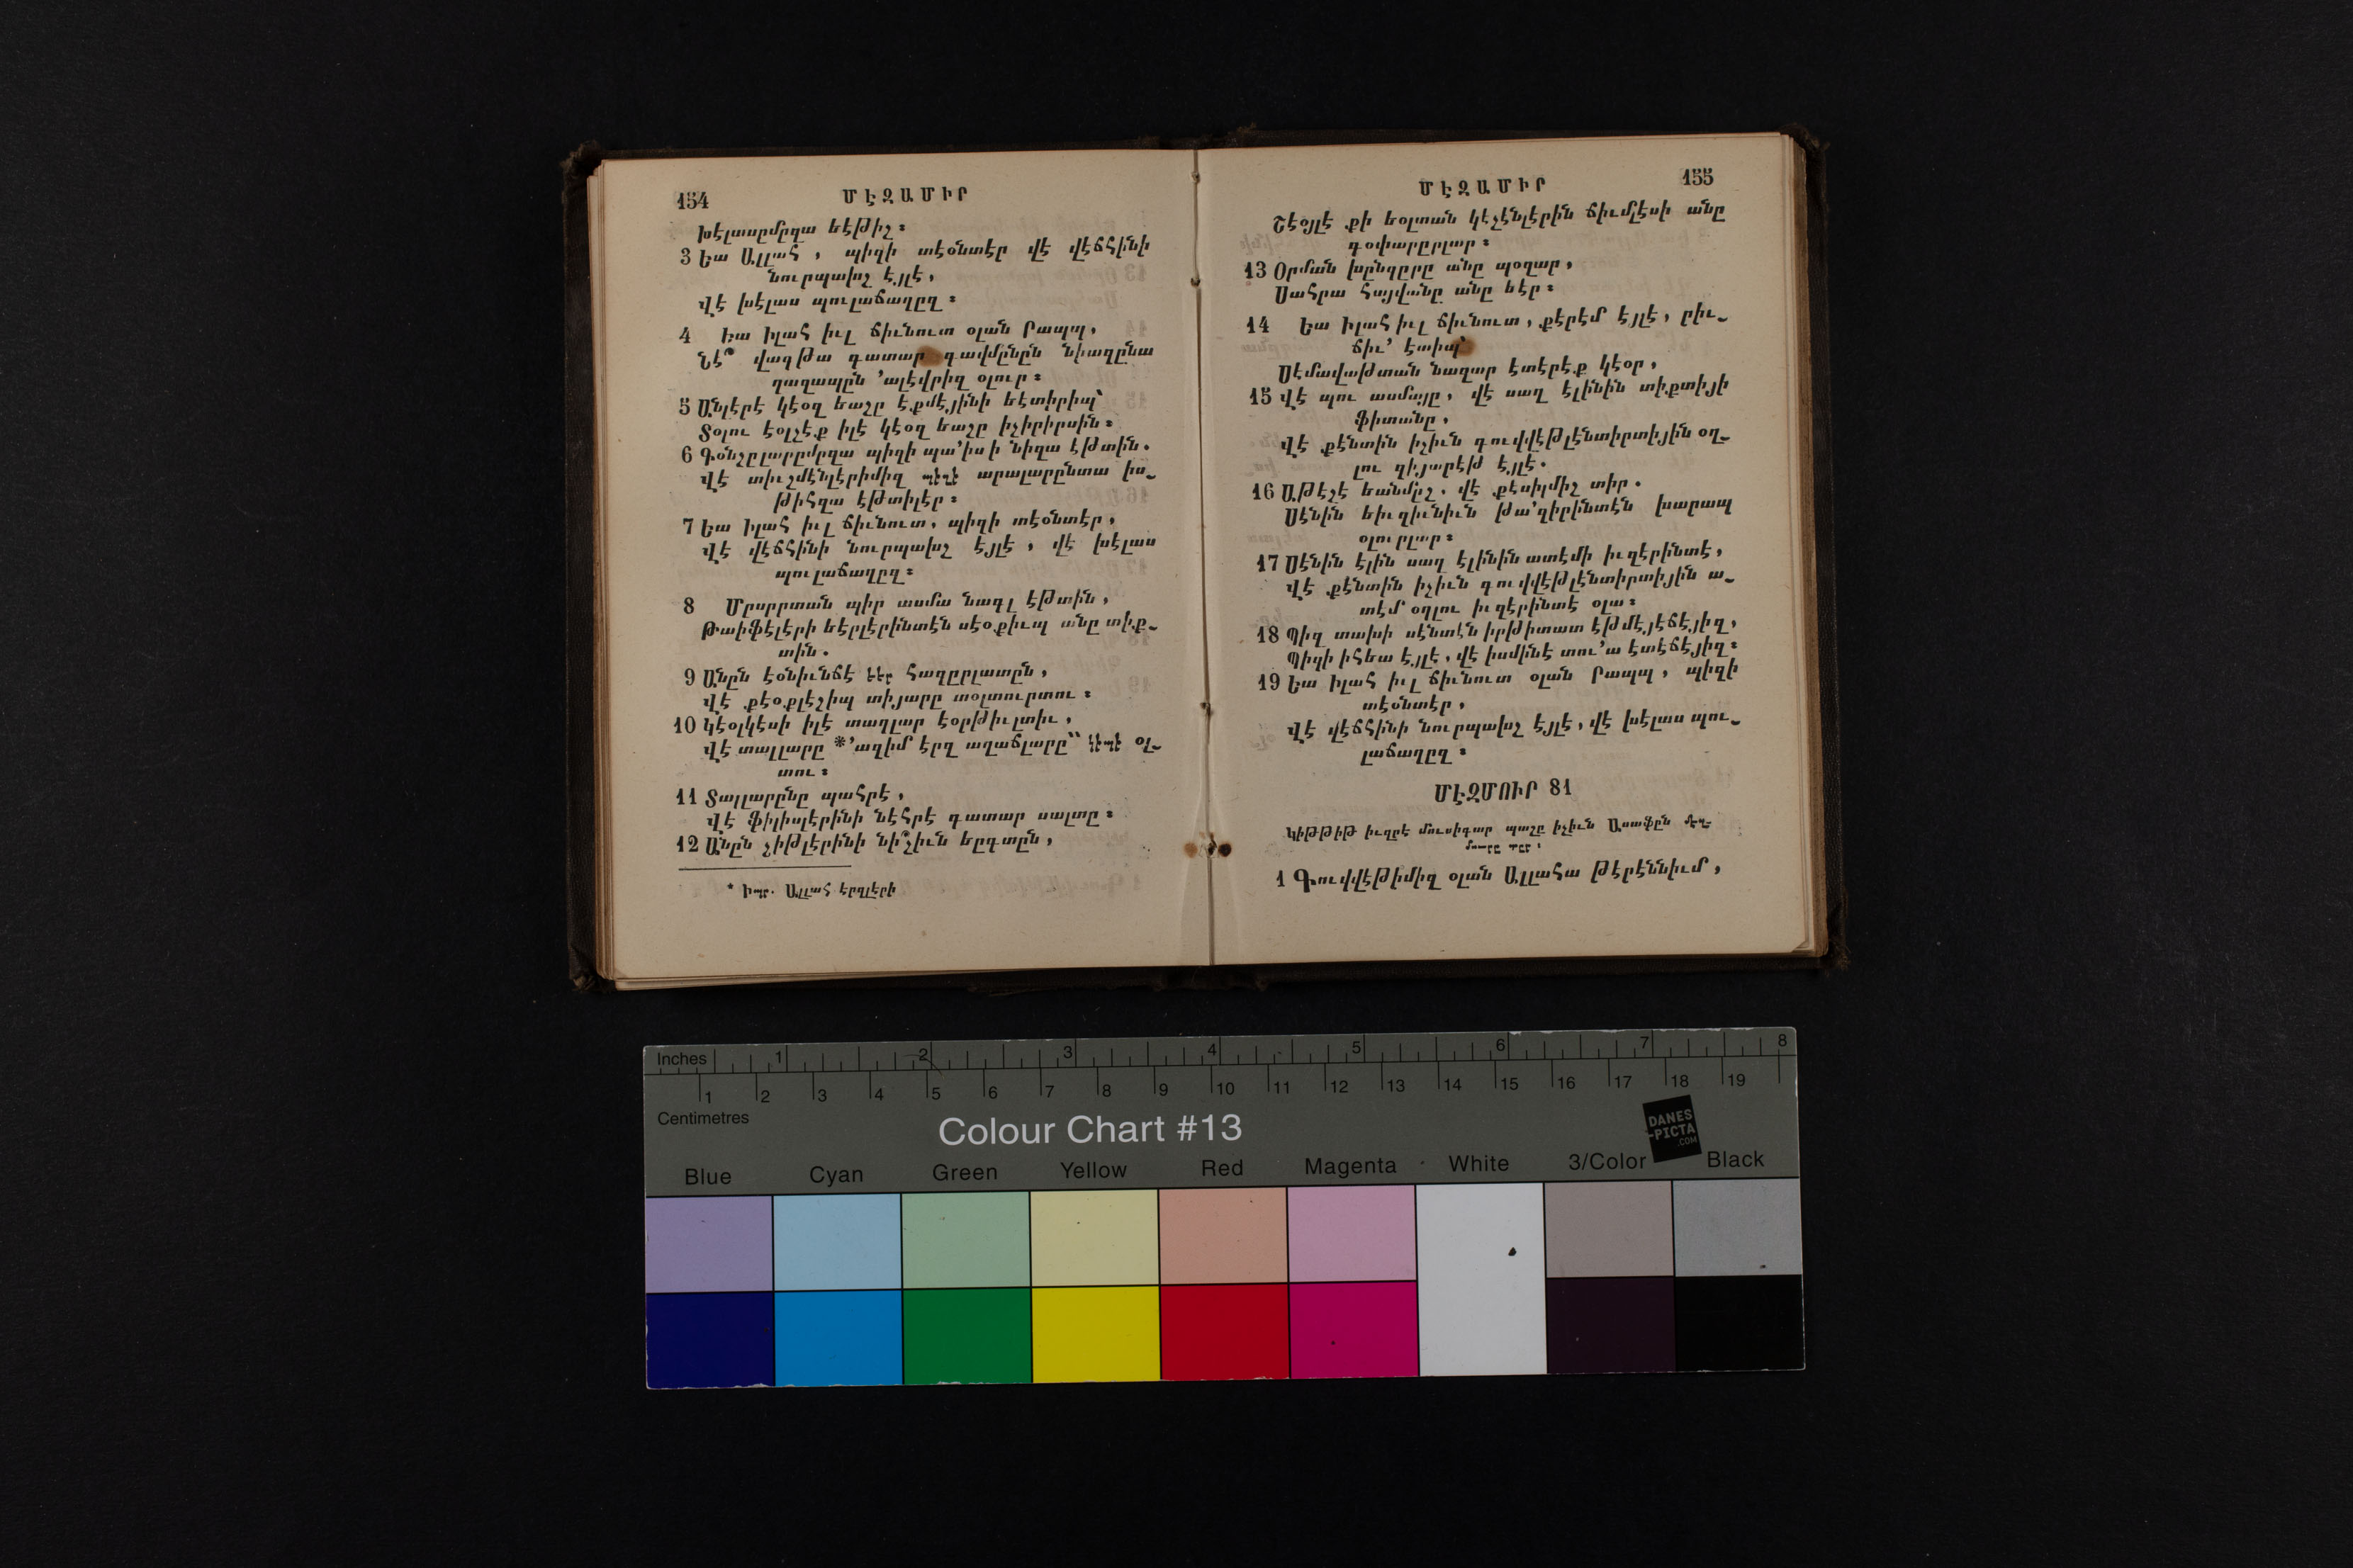 154 ՄԷԶԱՄԻՐ
խէլասըմըզա եէթիշ։
3 Եա Ալլահ , պիզի տէօնտէր վէ վէճհինի
նուրպախշ էյլէ,
վէ խէլաս պուլաճաղըզ։
4 Եա Իլահ իւլ ճիւնուտ օլան Րապպ,
Նէ՞ վազթա գատար գավմընըն նիազընա
ղաղապըն ՚ալէվրիզ օլուր։
5 Անլէրէ կէօզ եաշը էքմէյինի եէտիրիպ՝
Տօլու էօլչէք իլէ կէօզ եաշը իչիրիրսին։
6 Գօնշըլարըմըզա պիզի պա՚իս ի նիզա էթտին.
վէ տիւշմէնլէրիմիզ պէզէ արալարընտա իս֊
թիհզա էթտիլէր։
7 Եա Իլահ իւլ ճիւնուտ, պիզի տէօնտէր,
վէ վէճհինի նուրպախշ էյլէ , վէ խէլաս
պուլաճաղըզ։
8 Մըսըրտան պիր ասմա նագլ էթտին,
Թաիֆէլէրի եէրլէրինտէն սէօքիւպ անը տիք֊
տին.
9 Անըն էօնիւնճէ եէր հազըրլատըն,
վէ քէօքլէշիպ տիյարը տօլտուրտու։
10 Կէօլկէսի իլէ տաղլար էօրթիւլտիւ,
վէ տալլարը *՚ազիմ էրզ աղաճլարը՝՝ կէպէ օլ֊
տու։
11 Տալլարընը պահրէ,
վէ ֆիլիսլէրինի նէհրէ գատար սալտը։
12 Անըն չիթլէրինի նի՞չիւն եըգտըն,
* Իպր. Ալլահ էրզլէրի
ՄԷԶԱՄԻՐ 155
Շէօյլէ քի եօլտան կէչէնլէրին ճիւմլէսի անը
գօփարըրլար։
13 Օրման խընզըրը անը պօզար,
Սահրա հայվանը անը եէր։
14 Եա Իլահ իւլ ճիւնուտ, քէրէմ էյլէ, րիւ֊
ճիւ՚ էտիպ՝
Սէմավաթտան նազար էտէրէք կէօր,
15 վէ պու ասմայը, վէ սաղ էլինին տիքտիյի
ֆիտանը,
վէ քէնտին իչիւն գուվվէթլէնտիրտիյին օղ֊
լու զիյարէթ էյլէ.
16 Աթէշէ եանմըշ, վէ քէսիլմիշ տիր.
Սէնին եիւզիւնիւն թա՚զիրինտէն խարապ
օլուրլար։
17 Սէնին էլին սաղ էլինին ատէմի իւզէրինտէ,
վէ քէնտին իչիւն գուվվէթլէնտիրտիյին ա֊
տէմ օղլու իւզէրինտէ օլա։
18 Պիզ տախի սէնտէն իրթիտատ էթմէյէճէյիզ,
Պիզի իհեա էյլէ, վէ իսմինէ տու՚ա էտէճէյիզ։
19 Եա Իլահ իւլ ճիւնուտ օլան Րապպ, պիզի
տէօնտէր,
վէ վէճհինի նուրպախշ էյլէ, վէ խէլաս պու֊
լաճաղըզ։
ՄԷԶՄՈՒՐ 81
Կիթթիթ իւզրէ մուսիգար պաշը իչիւն Ասաֆըն մէզ֊
մուրը տըր,
1 Գուվվէթիմիզ օլան Ալլահա թէրէննիւմ,
Inches 1 2 3 4 5 6 7 8
1 2 3 4 5 6 7 8 9 10 11 12 13 14 15 16 17 18 19
Centimetres
Colour Chart #13
DANES
-PICTA
.COM
Blue Cyan Green Yellow Red Magenta White 3/Color Black